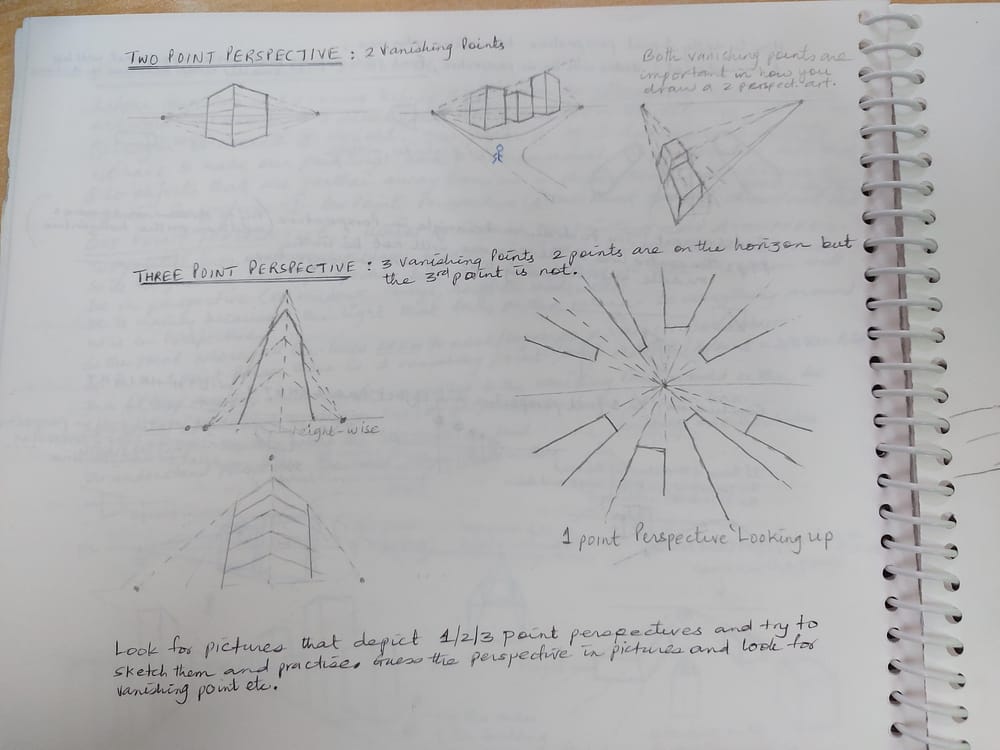 TWO POINT PERSPECTIVE : 2 Vanishing Points
Both vanishing points are
important in how you
draw a 2 perspect. art.
THREE POINT PERSPECTIVE : 3 Vanishing Points 2 points are on the horizon but
the 3rd point is not.
height-wise
1 point Perspective 'Looking up
Look for pictures that depict 1/2/3 point perspectives and try to
sketch them and practise. Guess the perspective in pictures and look for
vanishing point etc.